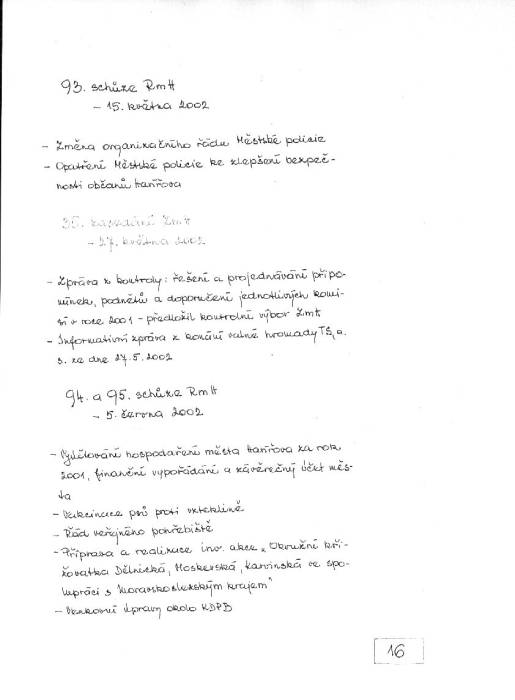 93. schůze RmH
- 15. května 2002
- Změna organizačního řádu Městské policie
- Opatření Městské policie ke zlepšení bezpeč-
nosti občanů Havířova
35. zasedání ZmH
- 27. května 2002
- Zpráva z kontroly: řešení a projednávání připo-
mínek, podnětů a doporučení jednotlivých komi-
sí v roce 2001 - předložil kontrolní výbor ZmH
- Informativní zpráva z konání valné hromady TS, a.
s. ze dne 27.5.2002
94. a 95. schůze RmH
- 5. června 2002
- Vyúčtování hospodaření města Havířova za rok
2001, finanční vypořádání a závěrečný účet měs-
ta
- Vakcinace psů proti vzteklině
- Řád veřejného pohřebiště
- Příprava a realizace inv. akce „Okružní kři-
žovatka Dělnická, Moskevská, Karvinská ve spo-
lupráci s Moravskoslezským krajem"
- Venkovní úpravy okolo KDPB
16